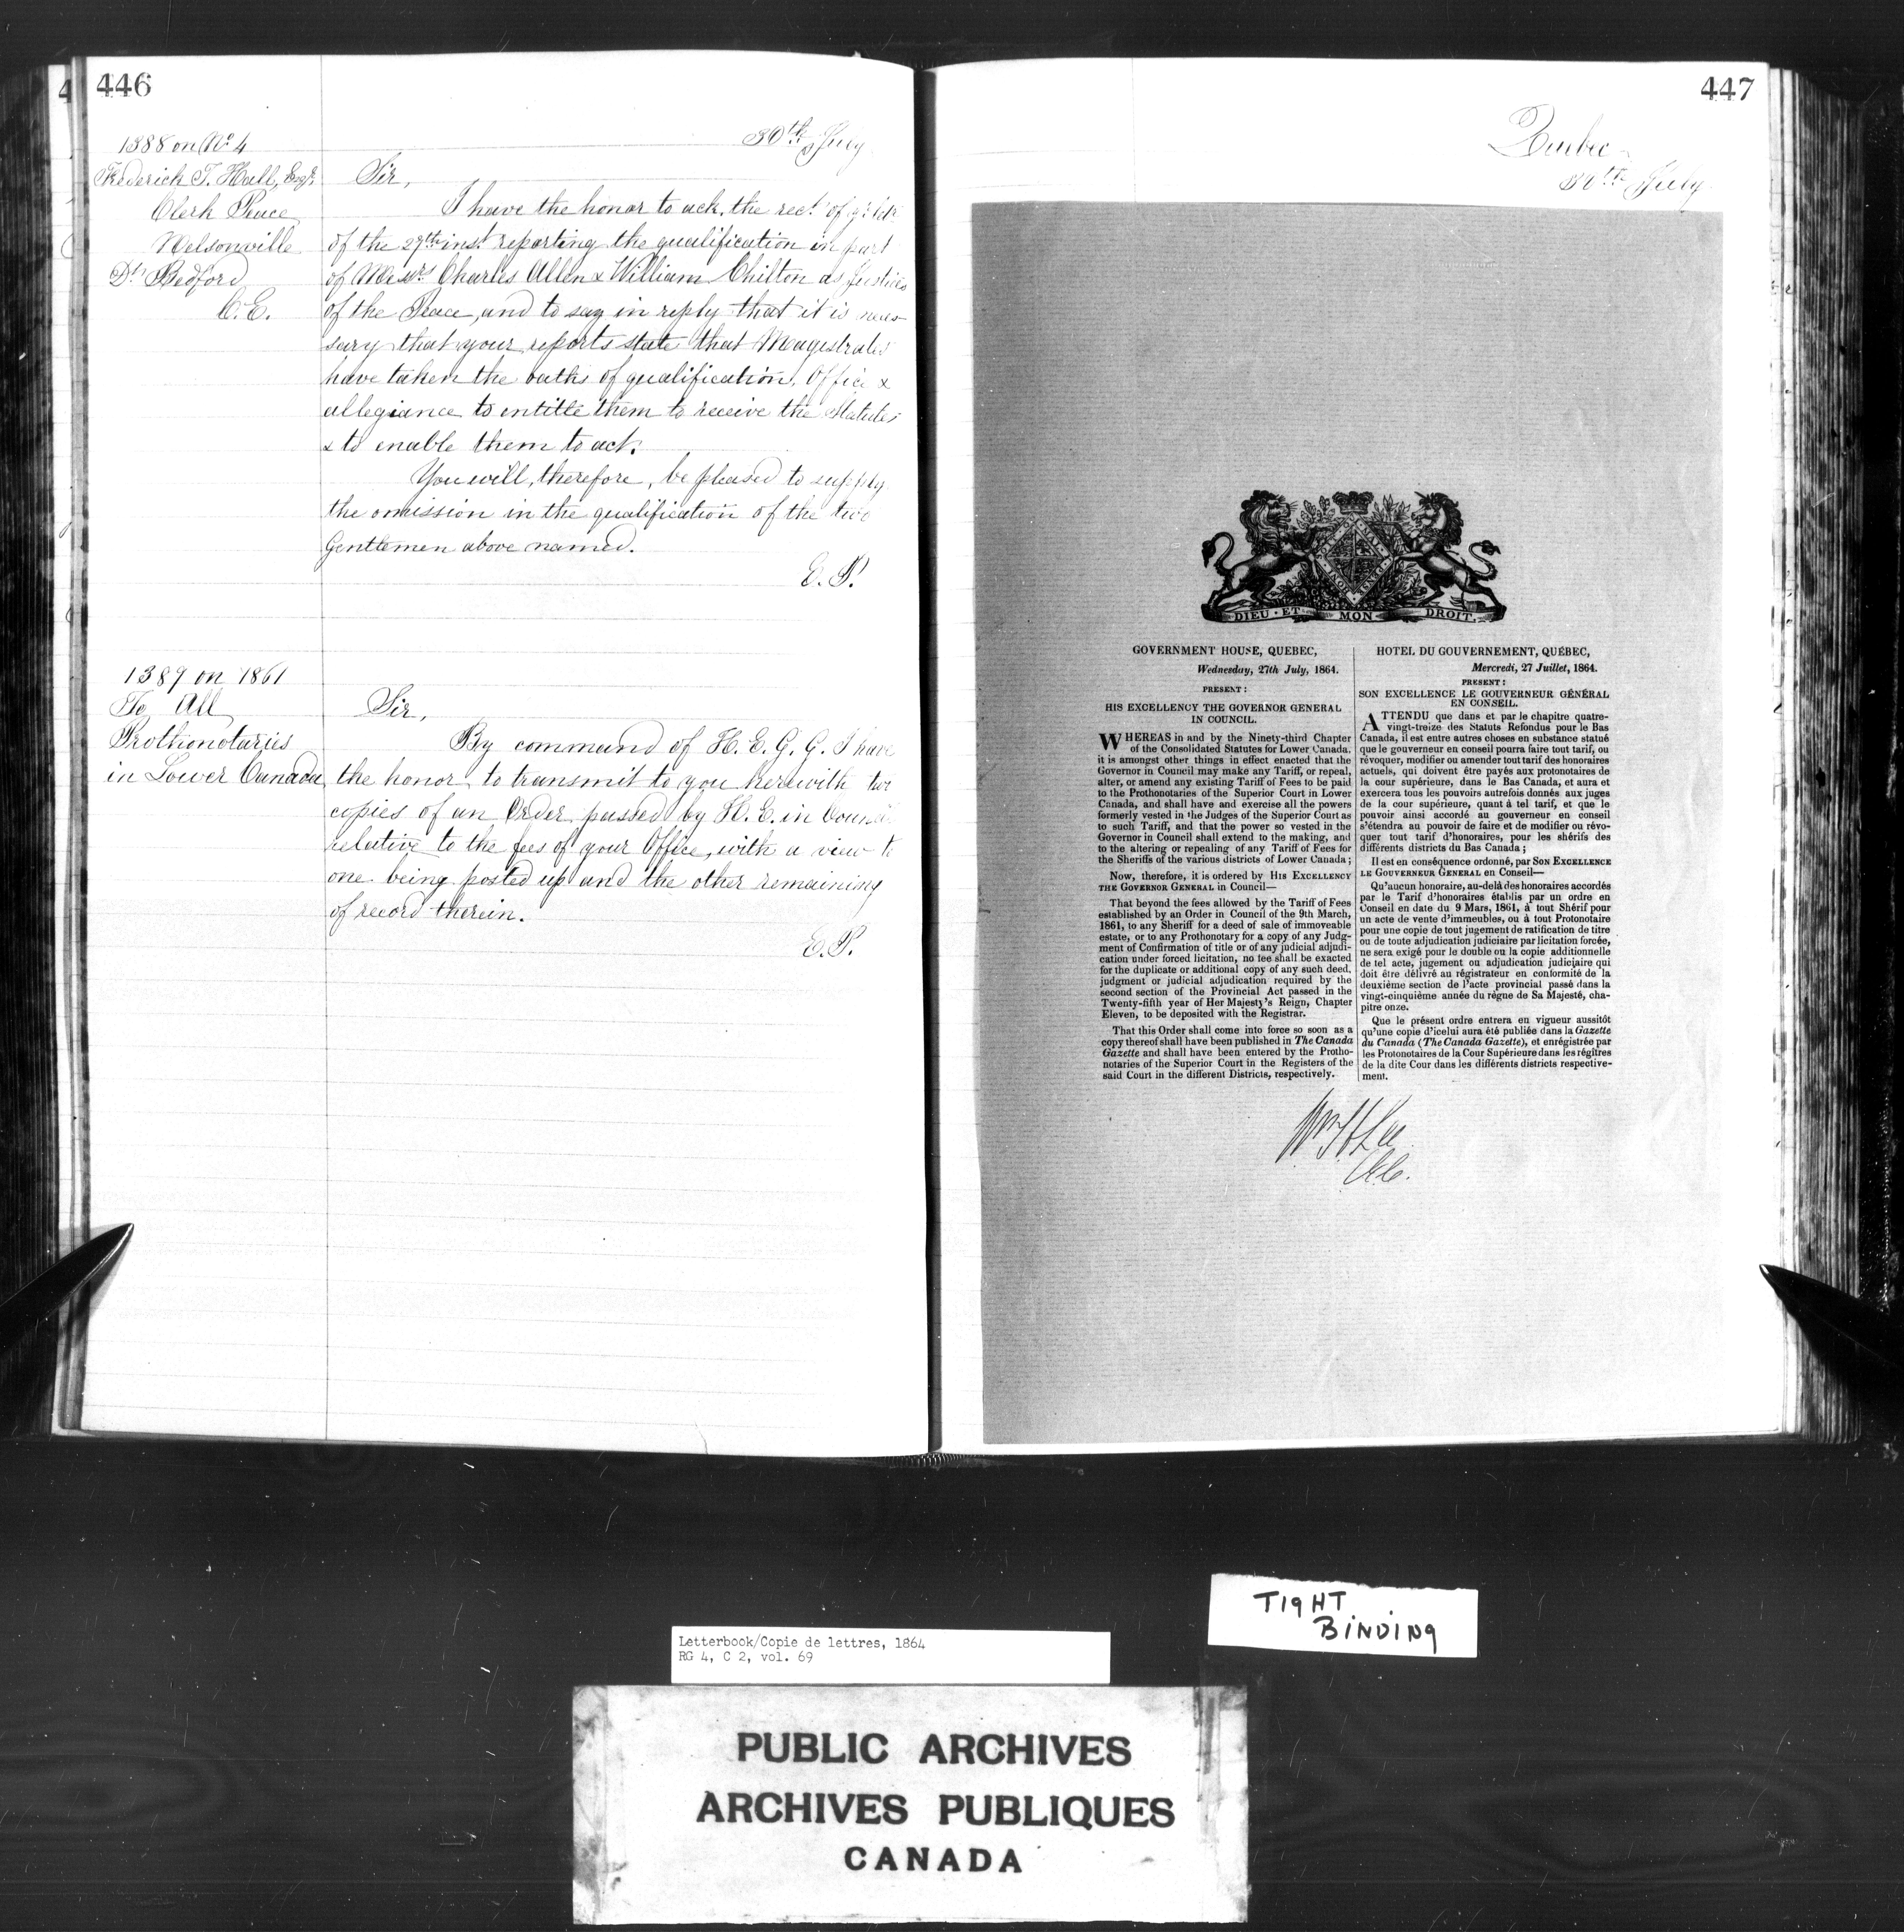 446
30th July
1388 on No 4
Frederich T. Hall, Esqr.
Clerk Peace
Nelsonville
Dt. Bedford
C.E.
Sir,
I have the honor to ack. the rect. of yr. letr
of the 27th inst. reporting the qualification in part
of Messrs Charles Allen & William Chilton as Justices
of the Peace, and to say in reply that it is neces-
sary that your reports state that Magistrates
have taken the oaths of qualification, Office &
allegiance to entitle them to receive the Statutes
& to enable them to act.
You will, therefore, be pleased to supply
the omission in the qualification of the two
Gentlemen above named.
E. P.
1389 on 1861
To All
Prothonotaries
in Lower Canada
Sir,
By command of H. E. G. G. I have
the honor to transmit to you herewith two
copies of an Order passed by H. E. in Council
relative to the fees of your Office, with a view to
one being posted up and the other remaining
of record therein.
E. P.
447
Quebec
30th July
DIEU · ET MON DROIT.
GOVERNMENT HOUSE, QUEBEC,
Wednesday, 27th July, 1864.
PRESENT:
HIS EXCELLENCY THE GOVERNOR GENERAL
IN COUNCIL.
WHEREAS in and by the Ninety-third Chapter
of the Consolidated Statutes for Lower Canada,
it is amongst other things in effect enacted that the
Governor in Council may make any Tariff, or repeal,
alter, or amend any existing Tariff of Fees to be paid
to the Prothonotaries of the Superior Court in Lower
Canada, and shall have and exercise all the powers
formerly vested in the Judges of the Superior Court as
to such Tariff, and that the power so vested in the
Governor in Council shall extend to the making, and
to the altering or repealing of any Tariff of Fees for
the Sheriffs of the various districts of Lower Canada;
Now, therefore, it is ordered by HIS EXCELLENCY
THE GOVERNOR GENERAL in Council—
That beyond the fees allowed by the Tariff of Fees
established by an Order in Council of the 9th March,
1861, to any Sheriff for a deed of sale of immoveable
estate, or to any Prothonotary for a copy of any Judg-
ment of Confirmation of title or of any judicial adjudi-
cation under forced licitation, no fee shall be exacted
for the duplicate or additional copy of any such deed,
judgment or judicial adjudication required by the
second section of the Provincial Act passed in the
Twenty-fifth year of Her Majesty's Reign, Chapter
Eleven, to be deposited with the Registrar.
That this Order shall come into force so soon as a
copy thereof shall have been published in The Canada
Gazette and shall have been entered by the Protho-
notaries of the Superior Court in the Registers of the
said Court in the different Districts, respectively.
HOTEL DU GOUVERNEMENT, QUÉBEC,
Mercredi, 27 Juillet, 1864.
PRESENT:
SON EXCELLENCE LE GOUVERNEUR GÉNÉRAL
EN CONSEIL.
ATTENDU que dans et par le chapitre quatre-
vingt-treize des Statuts Refondus pour le Bas
Canada, il est entre autres choses en substance statué
que le gouverneur en conseil pourra faire tout tarif, ou
révoquer, modifier ou amender tout tarif des honoraires
actuels, qui doivent être payés aux protonotaires de
la cour supérieure, dans le Bas Canada, et aura et
exercera tous les pouvoirs autrefois donnés aux juges
de la cour supérieure, quant à tel tarif, et que le
pouvoir ainsi accordé au gouverneur en conseil
s'étendra au pouvoir de faire et de modifier ou révo-
quer tout tarif d'honoraires, pour les shérifs des
différents districts du Bas Canada;
Il est en conséquence ordonné, par SON EXCELLENCE
LE GOUVERNEUR GENERAL en Conseil—
Qu'aucun honoraire, au-delà des honoraires accordés
par le Tarif d'honoraires établis par un ordre en
Conseil en date du 9 Mars, 1861, à tout Shérif pour
un acte de vente d'immeubles, ou à tout Protonotaire
pour une copie de tout jugement de ratification de titre
ou de toute adjudication judiciaire par licitation forcée,
ne sera exigé pour le double ou la copie additionnelle
de tel acte, jugement ou adjudication judiciaire qui
doit être délivré au régistrateur en conformité de la
deuxième section de l'acte provincial passé dans la
vingt-cinquième année du règne de Sa Majesté, cha-
pitre onze.
Que le présent ordre entrera en vigueur aussitôt
qu'une copie d'icelui aura été publiée dans la Gazette
du Canada (The Canada Gazette), et enrégistrée par
les Protonotaires de la Cour Supérieure dans les régîtres
de la dite Cour dans les différents districts respective-
ment.
Wm H Lee
TIGHT
BINDING
Letterbook/Copie de lettres, 1864
RG 4, C 2, vol. 69
PUBLIC ARCHIVES
ARCHIVES PUBLIQUES
CANADA